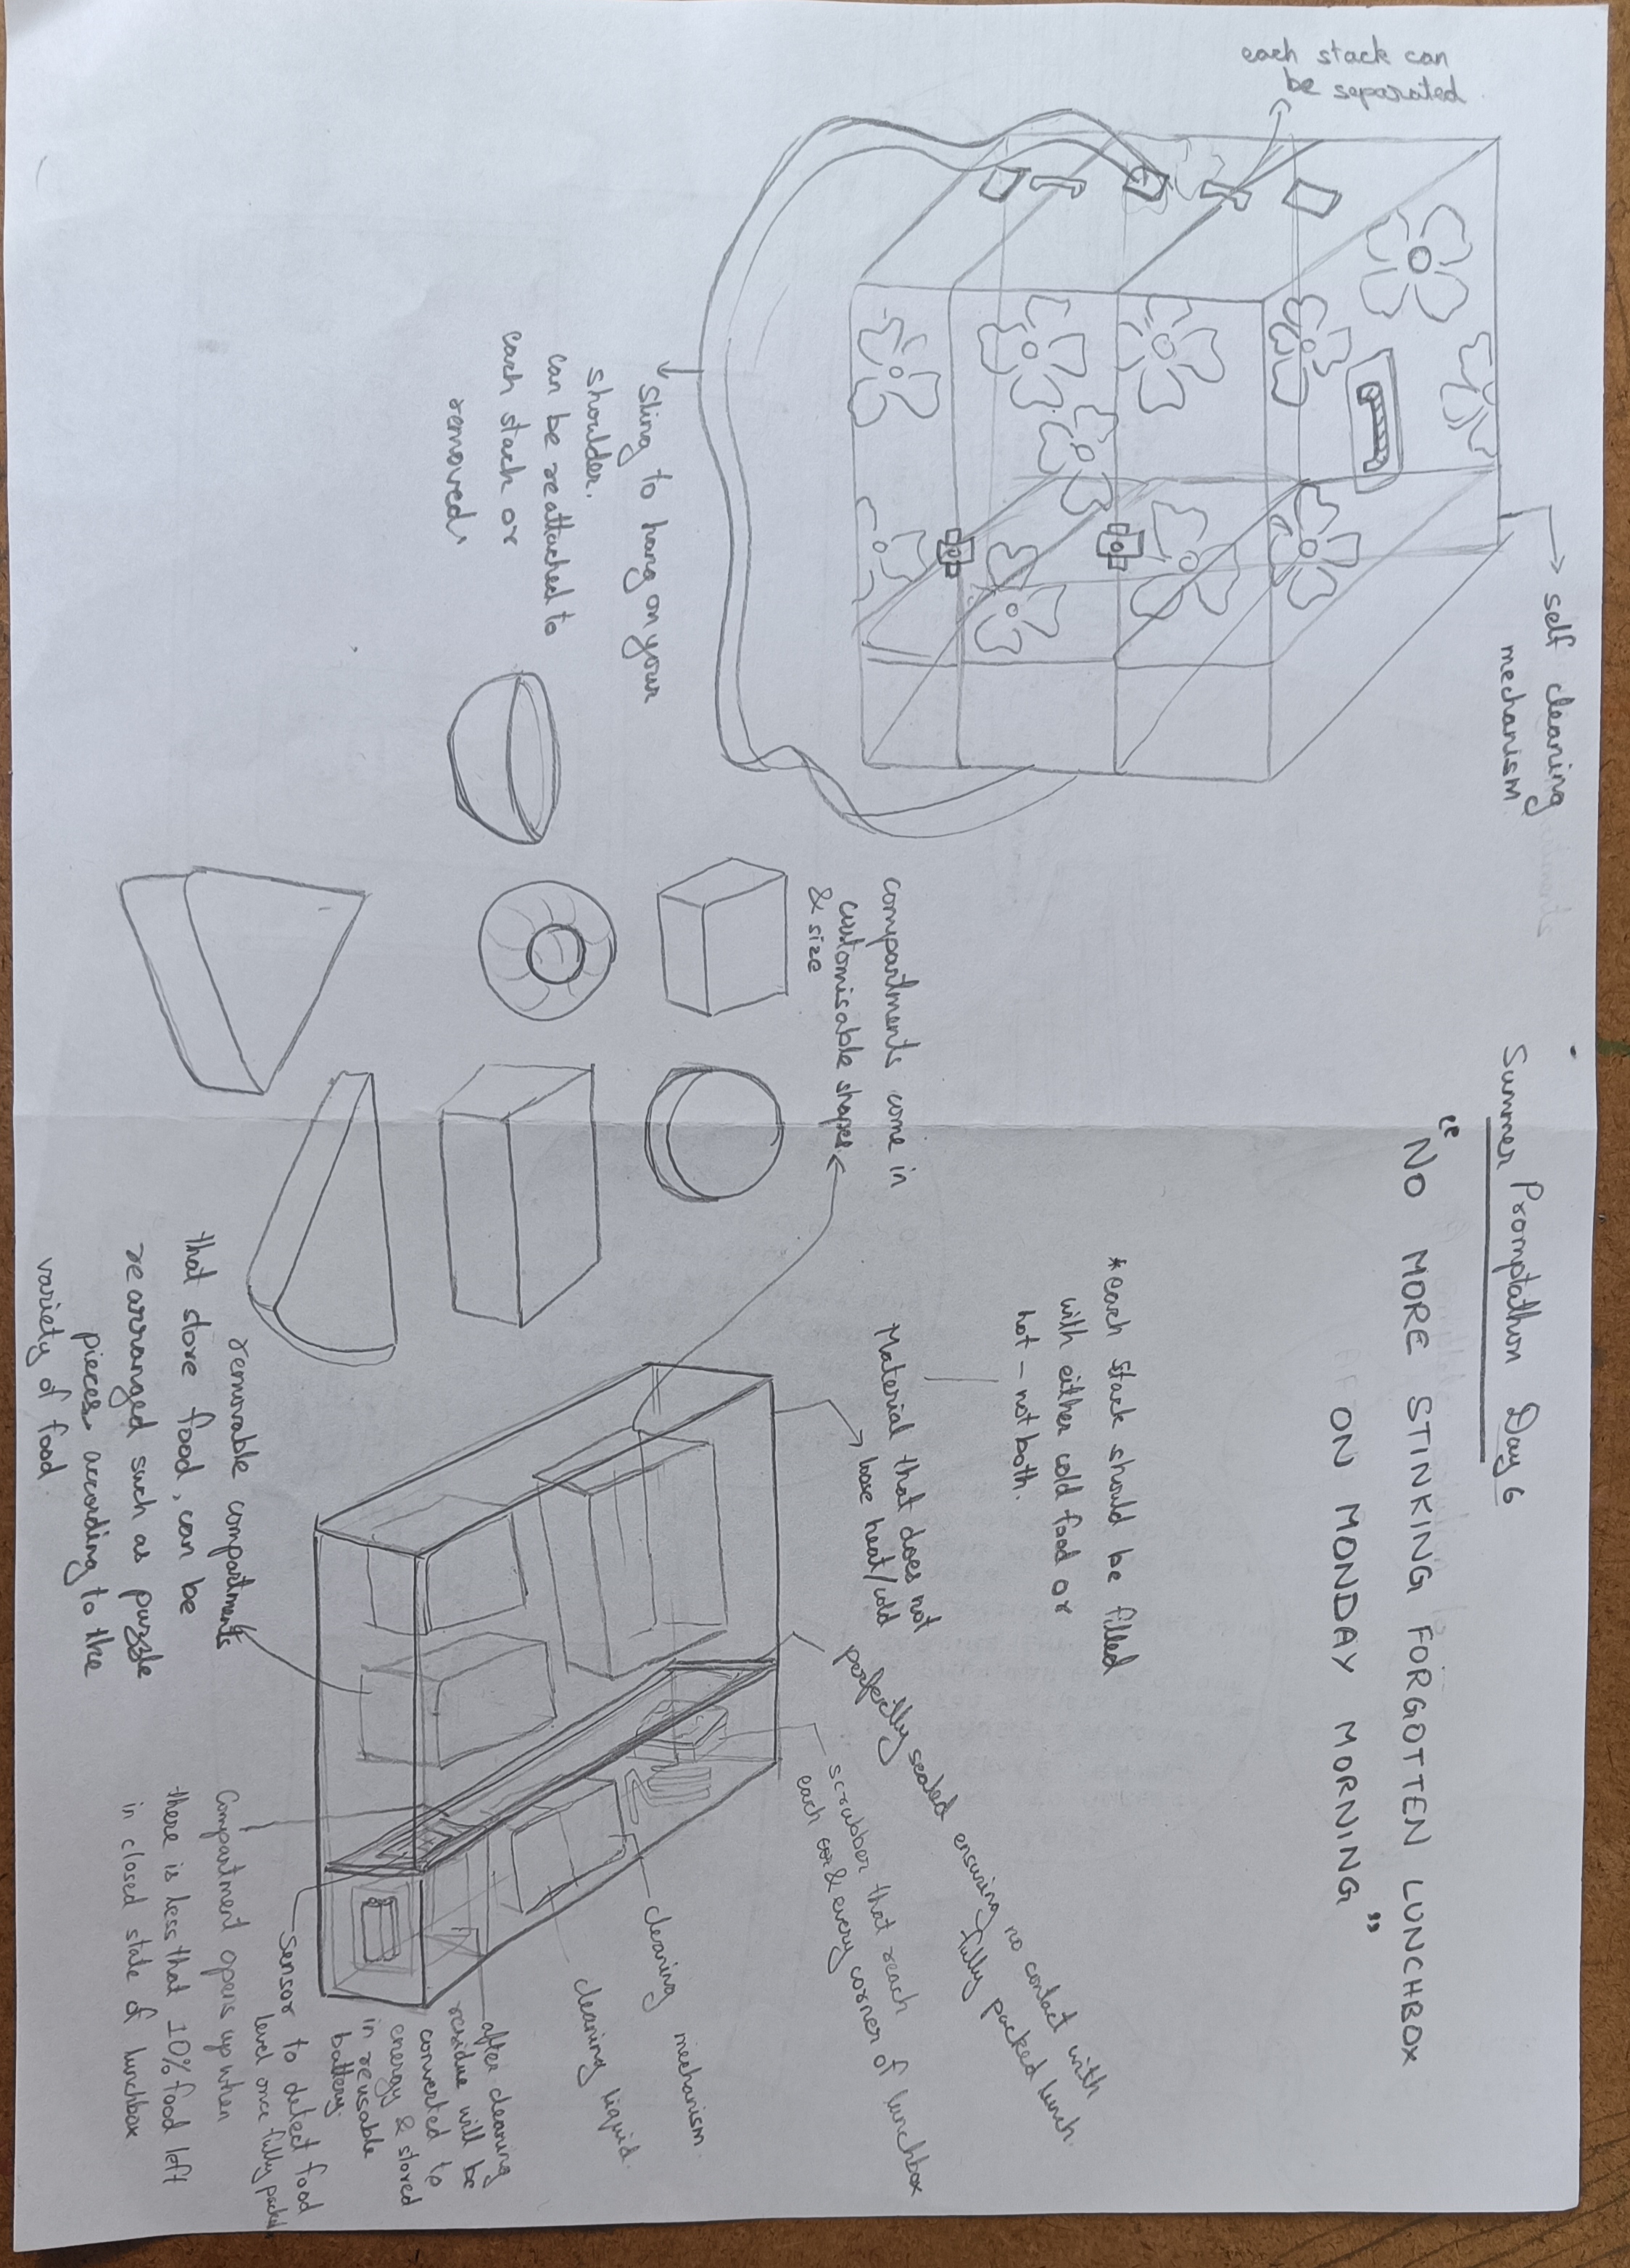 Summer Promptathon Day 6
"NO MORE STINKING FORGOTTEN LUNCHBOX
ON MONDAY MORNING"
each stack can
be separated
self cleaning
mechanism
Sling to hang on your
shoulder.
can be reattached to
each stack or
removed.
compartments come in
customisable shapes
& size
*each stack should be filled
with either cold food or
hot - not both.
Material that does not
lose heat/cold
perfectly sealed ensuring no contact with
fully packed lunch.
scrubber that reach
each & every corner of lunchbox
cleaning mechanism.
cleaning liquid.
after cleaning
residue will be
converted to
energy & stored
in reusable
battery.
Sensor to detect food
level once fully packed
Compartment opens up when
there is less that 10% food left
in closed state of lunchbox
removable compartments
that store food, can be
rearranged such as puzzle
pieces according to the
variety of food